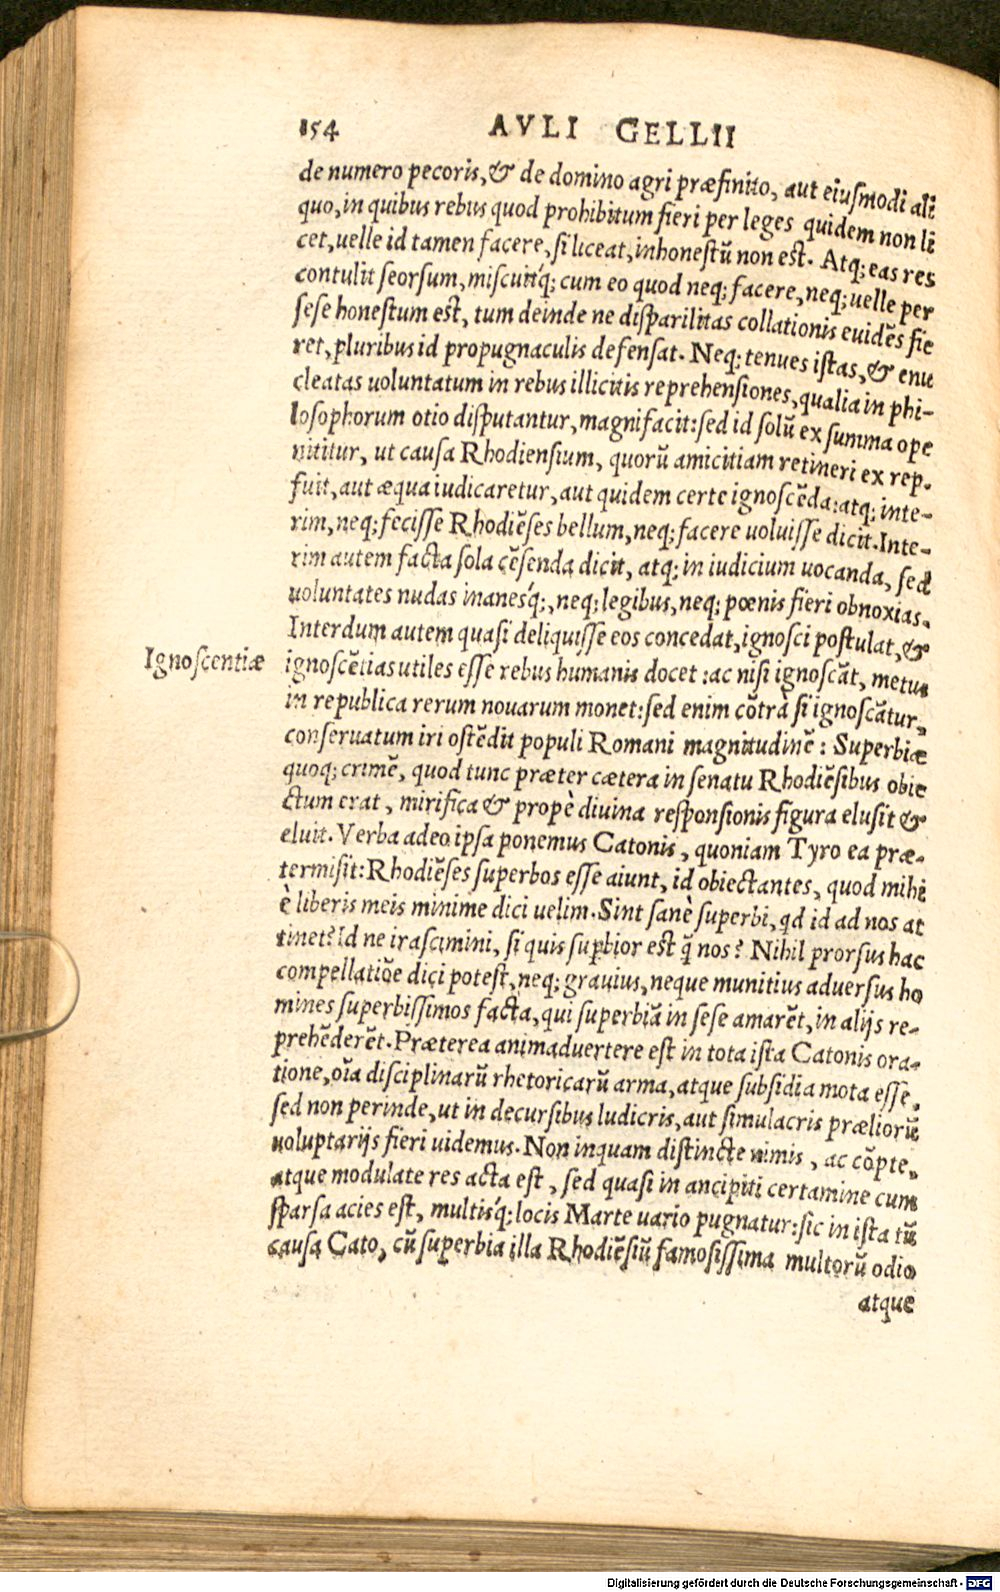 154 AVLI GELLII
de numero pecoris, & de domino agri præfinito, aut eiusmodi ali
quo, in quibus rebus quod prohibitum fieri per leges quidem non li
cet, uelle id tamen facere, si liceat, inhonestũ non est. Atq; eas res
contulit seorsum, miscuitq́; cum eo quod neq; facere, neq; uelle per
sese honestum est, tum deinde ne disparilitas collationis euidẽs fie
ret, pluribus id propugnaculis defensat. Neq; tenues istas, & enu
cleatas uoluntatum in rebus illicitis reprehensiones, qualia in phi-
losophorum otio disputantur, magnifacit: sed id solũ ex summa ope
nititur, ut causa Rhodiensium, quorũ amicitiam retineri ex rep.
fuit, aut æqua iudicaretur, aut quidem certe ignoscẽda: atq; inte-
rim, neq; fecisse Rhodiẽses bellum, neq; facere uoluisse dicit. Inte-
rim autem facta sola cẽsenda dicit, atq; in iudicium uocanda, sed
uoluntates nudas inanesq́;, neq; legibus, neq; pœnis fieri obnoxias.
Interdum autem quasi deliquisse eos concedat, ignosci postulat, &
Ignoscentiæ
ignoscẽtias utiles esse rebus humanis docet: ac nisi ignoscãt, metus
in republica rerum nouarum monet: sed enim cõtrà si ignoscãtur,
conseruatum iri ostẽdit populi Romani magnitudinẽ: Superbiæ
quoq; crimẽ, quod tunc præter cætera in senatu Rhodiẽsibus obie
ctum erat, mirifica & propè diuina responsionis figura elusit &
eluit. Verba adeo ipsa ponemus Catonis, quoniam Tyro ea præ-
termisit: Rhodiẽses superbos esse aiunt, id obiectantes, quod mihi
è liberis meis minime dici uelim. Sint sanè superbi, qd id ad nos at
tinet? Id ne irascimini, si quis supbior est q̃ nos? Nihil prorsus hac
compellatiõe dici potest, neq; grauius, neque munitius aduersus ho
mines superbissimos facta, qui superbiã in sese amarẽt, in alijs re-
prehẽderẽt. Præterea animaduertere est in tota ista Catonis ora-
tione, oĩa disciplinarũ rhetoricarũ arma, atque subsidia mota esse,
sed non perinde, ut in decursibus ludicris, aut simulacris præliorũ
uoluptarijs fieri uidemus. Non inquam distincte nimis, ac cõpte,
atque modulate res acta est, sed quasi in ancipiti certamine cum
sparsa acies est, multisq́; locis Marte uario pugnatur: sic in ista tũ
causa Cato, cũ superbia illa Rhodiẽsiũ famosissima multorũ odio
atque
Digitalisierung gefördert durch die Deutsche Forschungsgemeinschaft - DFG